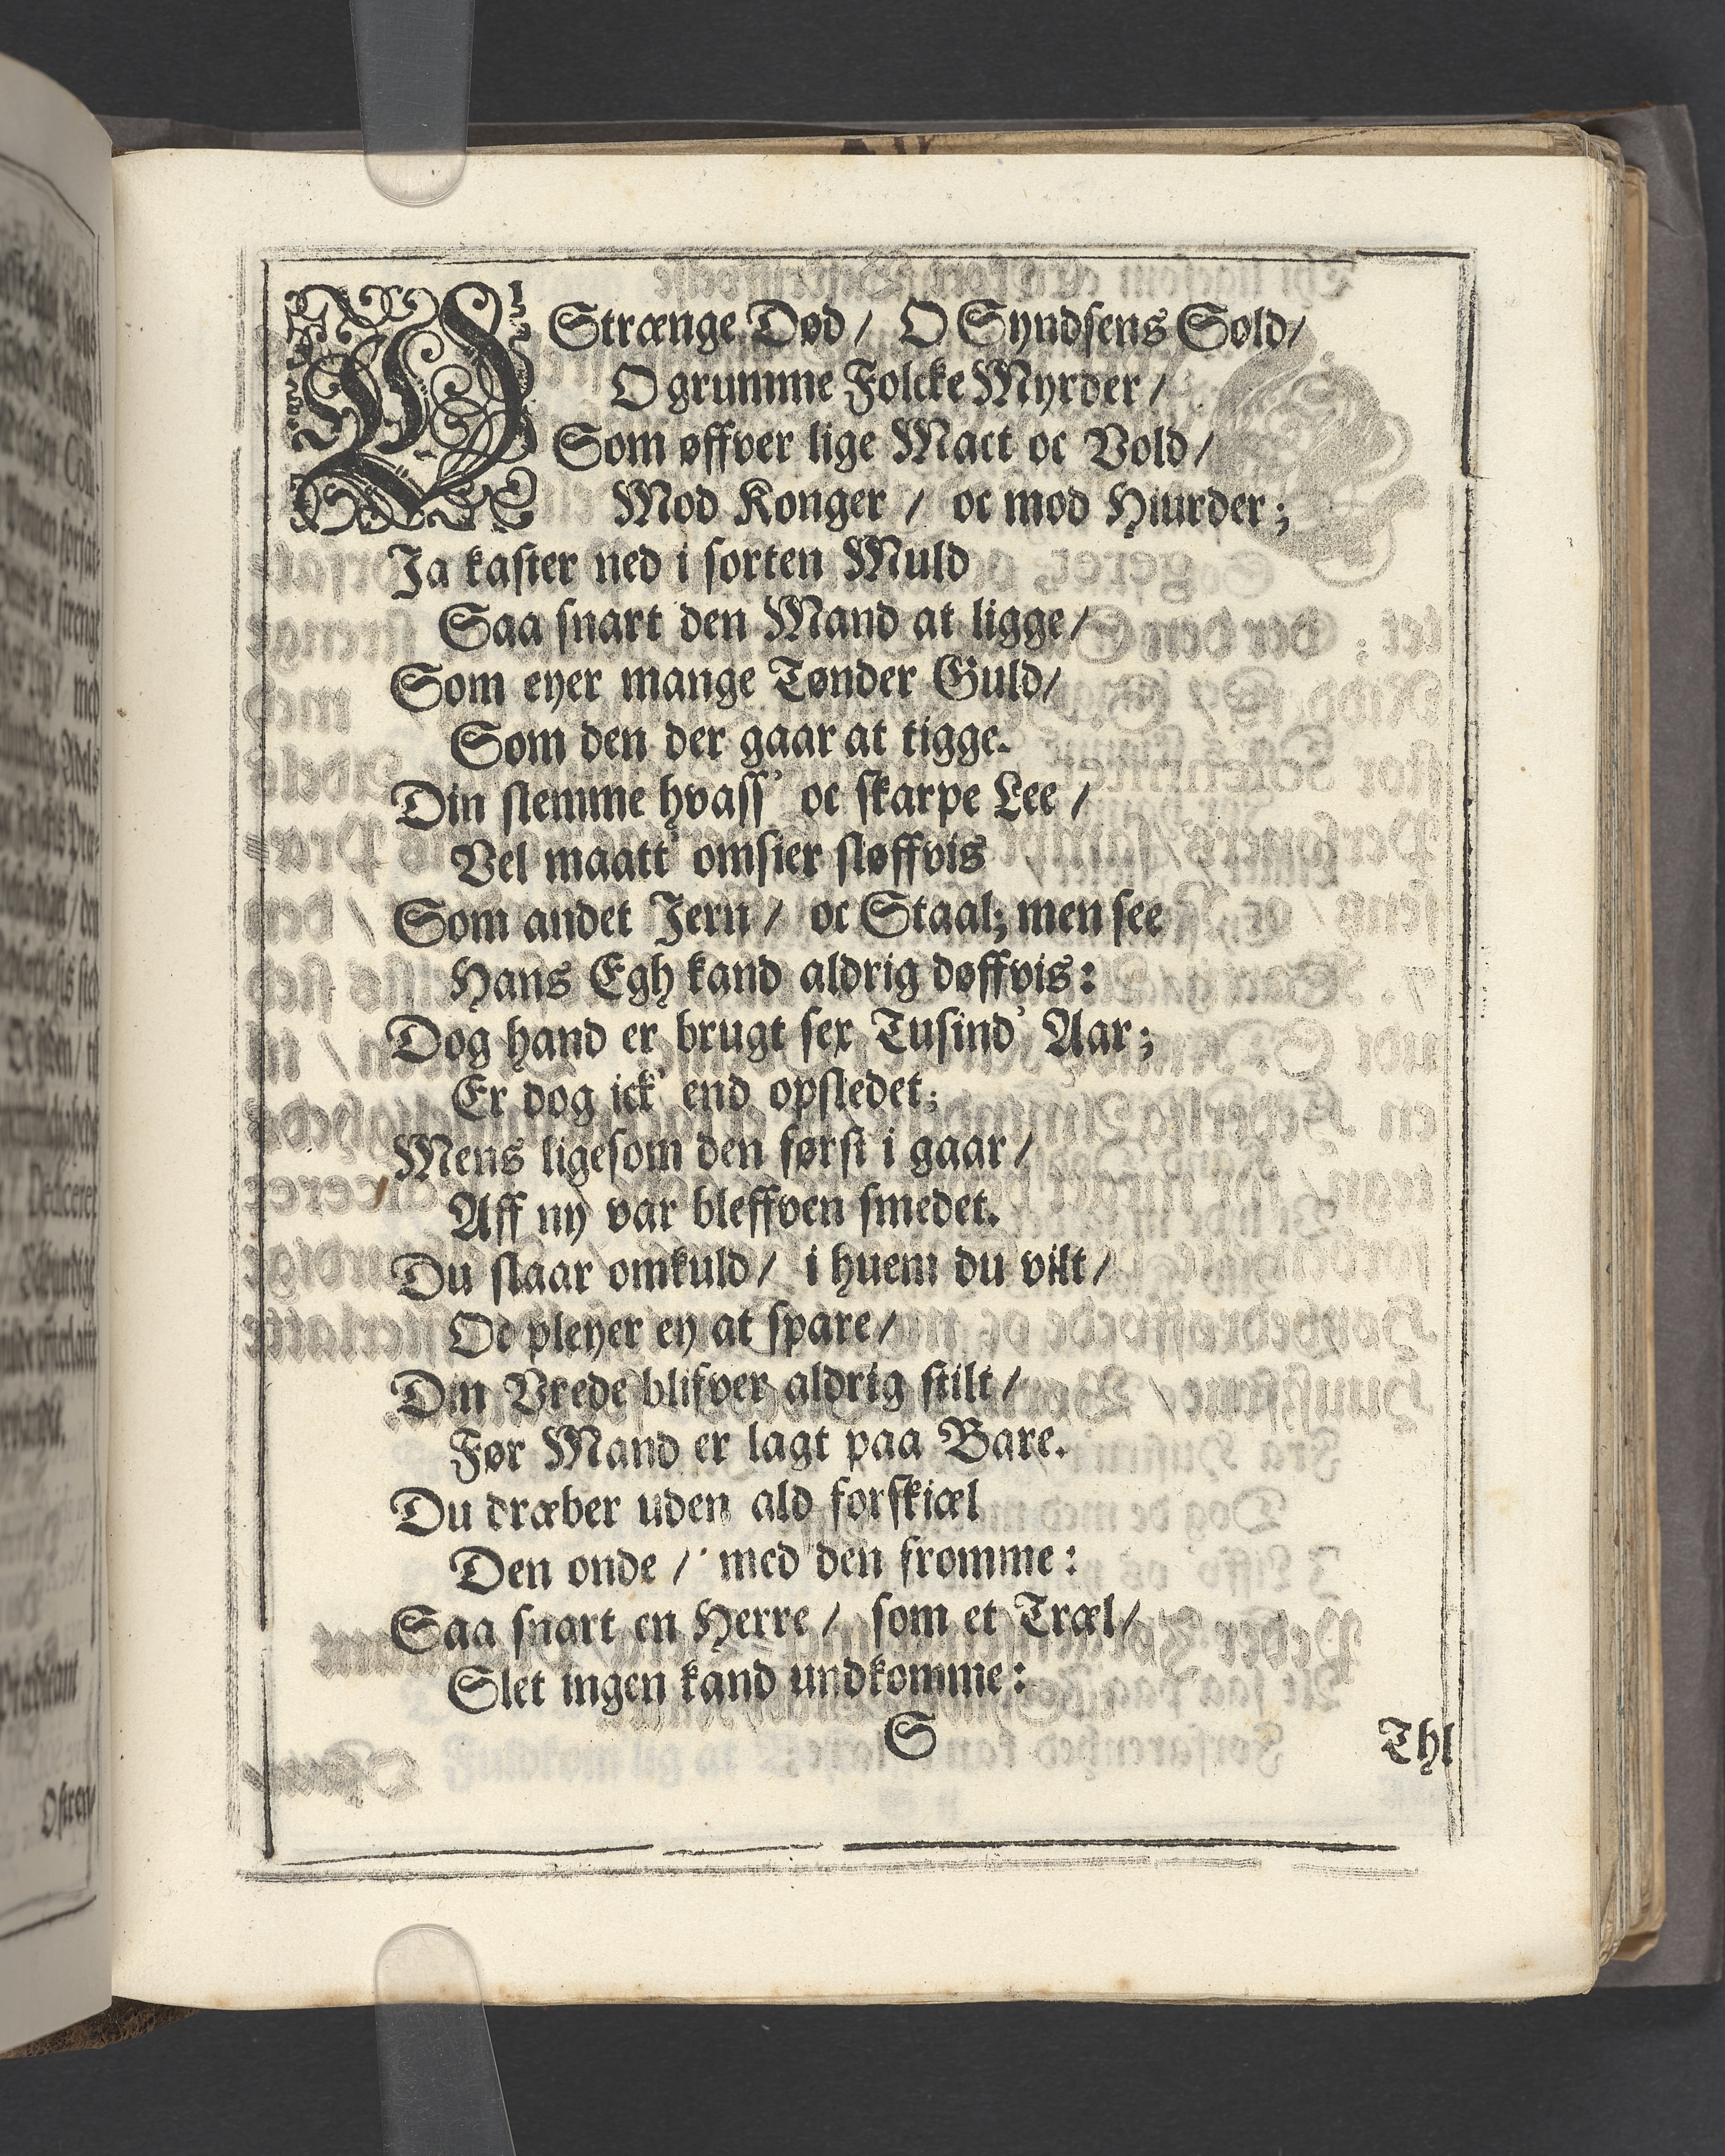 Strænge Død / O Syndsens Sold /
O grumme Folcke Myrder /
Som øffver lige Mact oc Vold /
Mod Konger / oc mod Hiurder ;
Ja kaster ned i sorten Muld
Saa snart den Mand at ligge /
Som eyer mange Tønder Guld /
Som den der gaar at tigge.
Din slemme hvass' oc skarpe Lee /
Vel maatt' omsier sløffvis
Som andet Jern / oc Staal; men see
Hans Egh kand aldrig døffvis :
Dog hand er brugt sex Tusind' Aar ;
Er dog ick' end opsledet;
Mens ligesom den først i gaar /
Aff ny var bleffven smedet.
Du slaar omkuld / i huem du vilt /
Oc pleyer ey at spare /
Din Vrede blifver aldrig stilt /
Før Mand er lagt paa Bare.
Du dræber uden ald forskiæl
Den onde / med den fromme :
Saa snart en Herre / som et Træl /
Slet ingen kand undkomme :
S
Thi